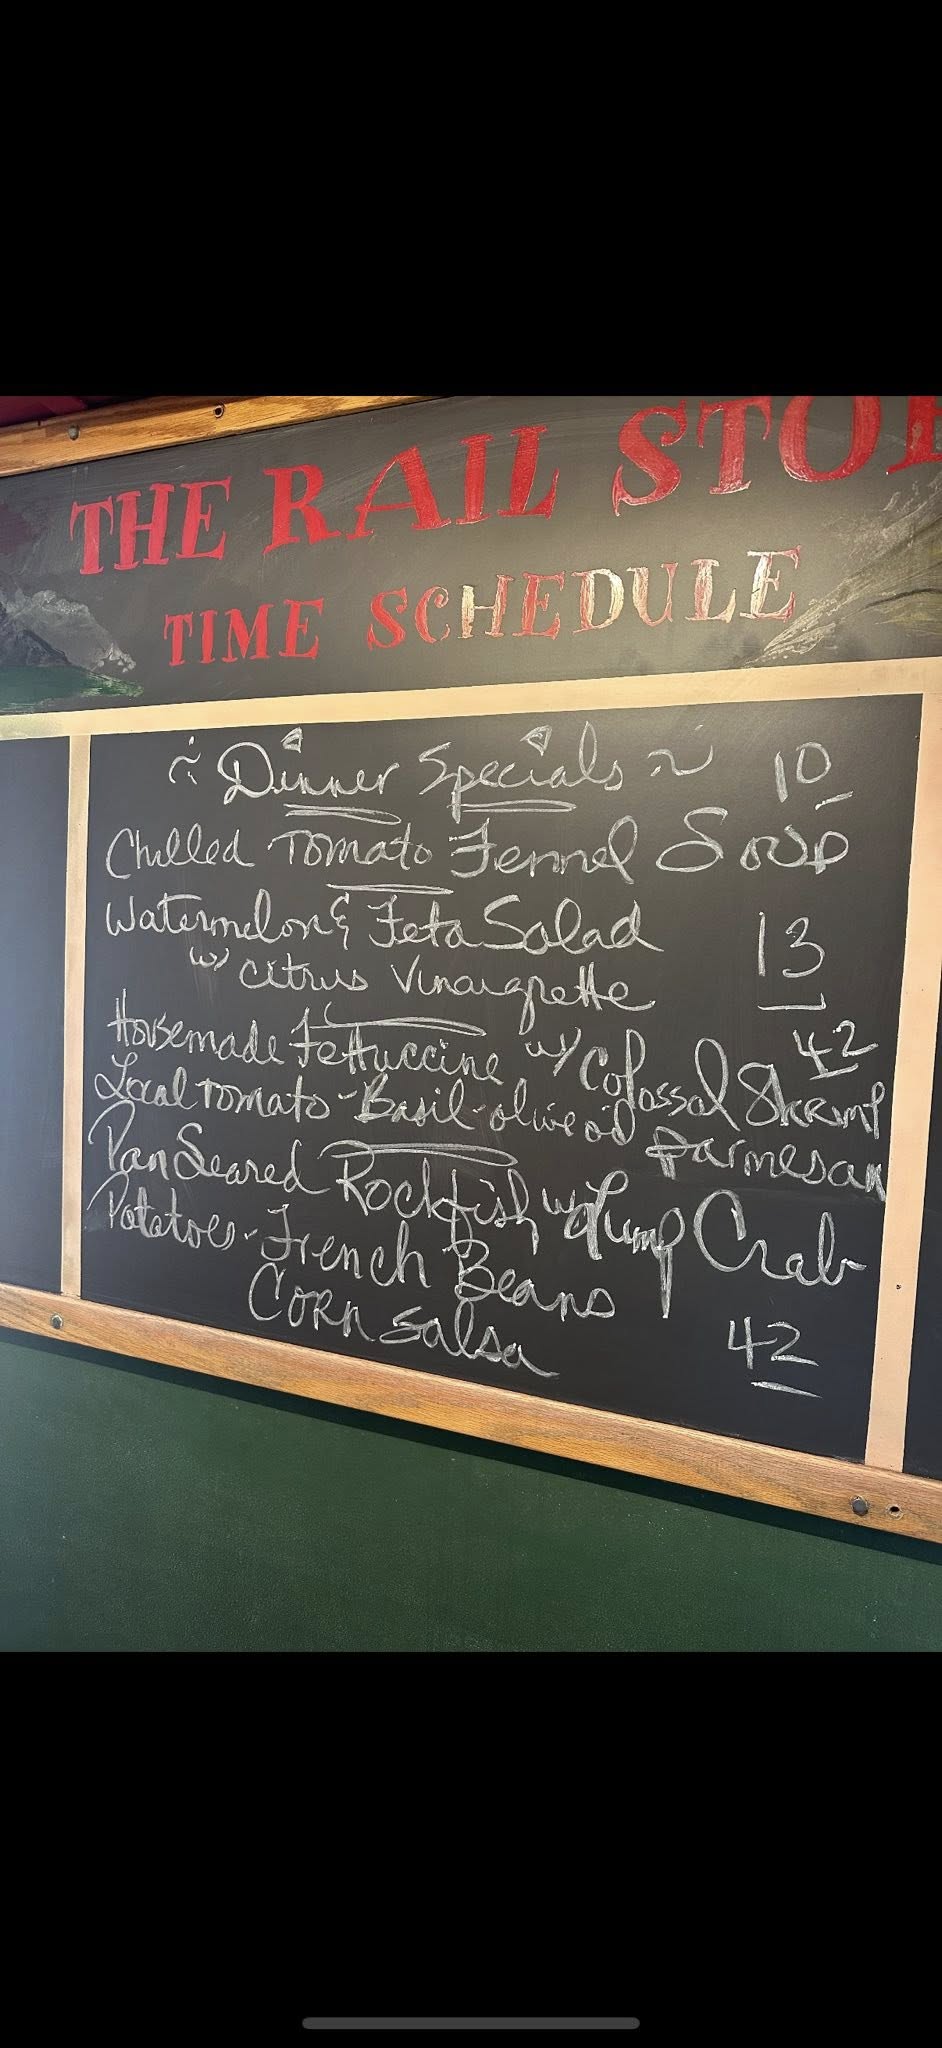 THE RAIL STOP
TIME SCHEDULE
~ Dinner Specials ~ 10
Chilled Tomato Fennel Soup
Watermelon & Feta Salad 13
w/ citrus Vinaigrette
Housemade Fettuccine w/ Colossal Shrimp 42
Local Tomato - Basil - olive oil Parmesan
Pan Seared Rockfish w/ Lump Crab
Potatoes - French Beans
Corn Salsa 42